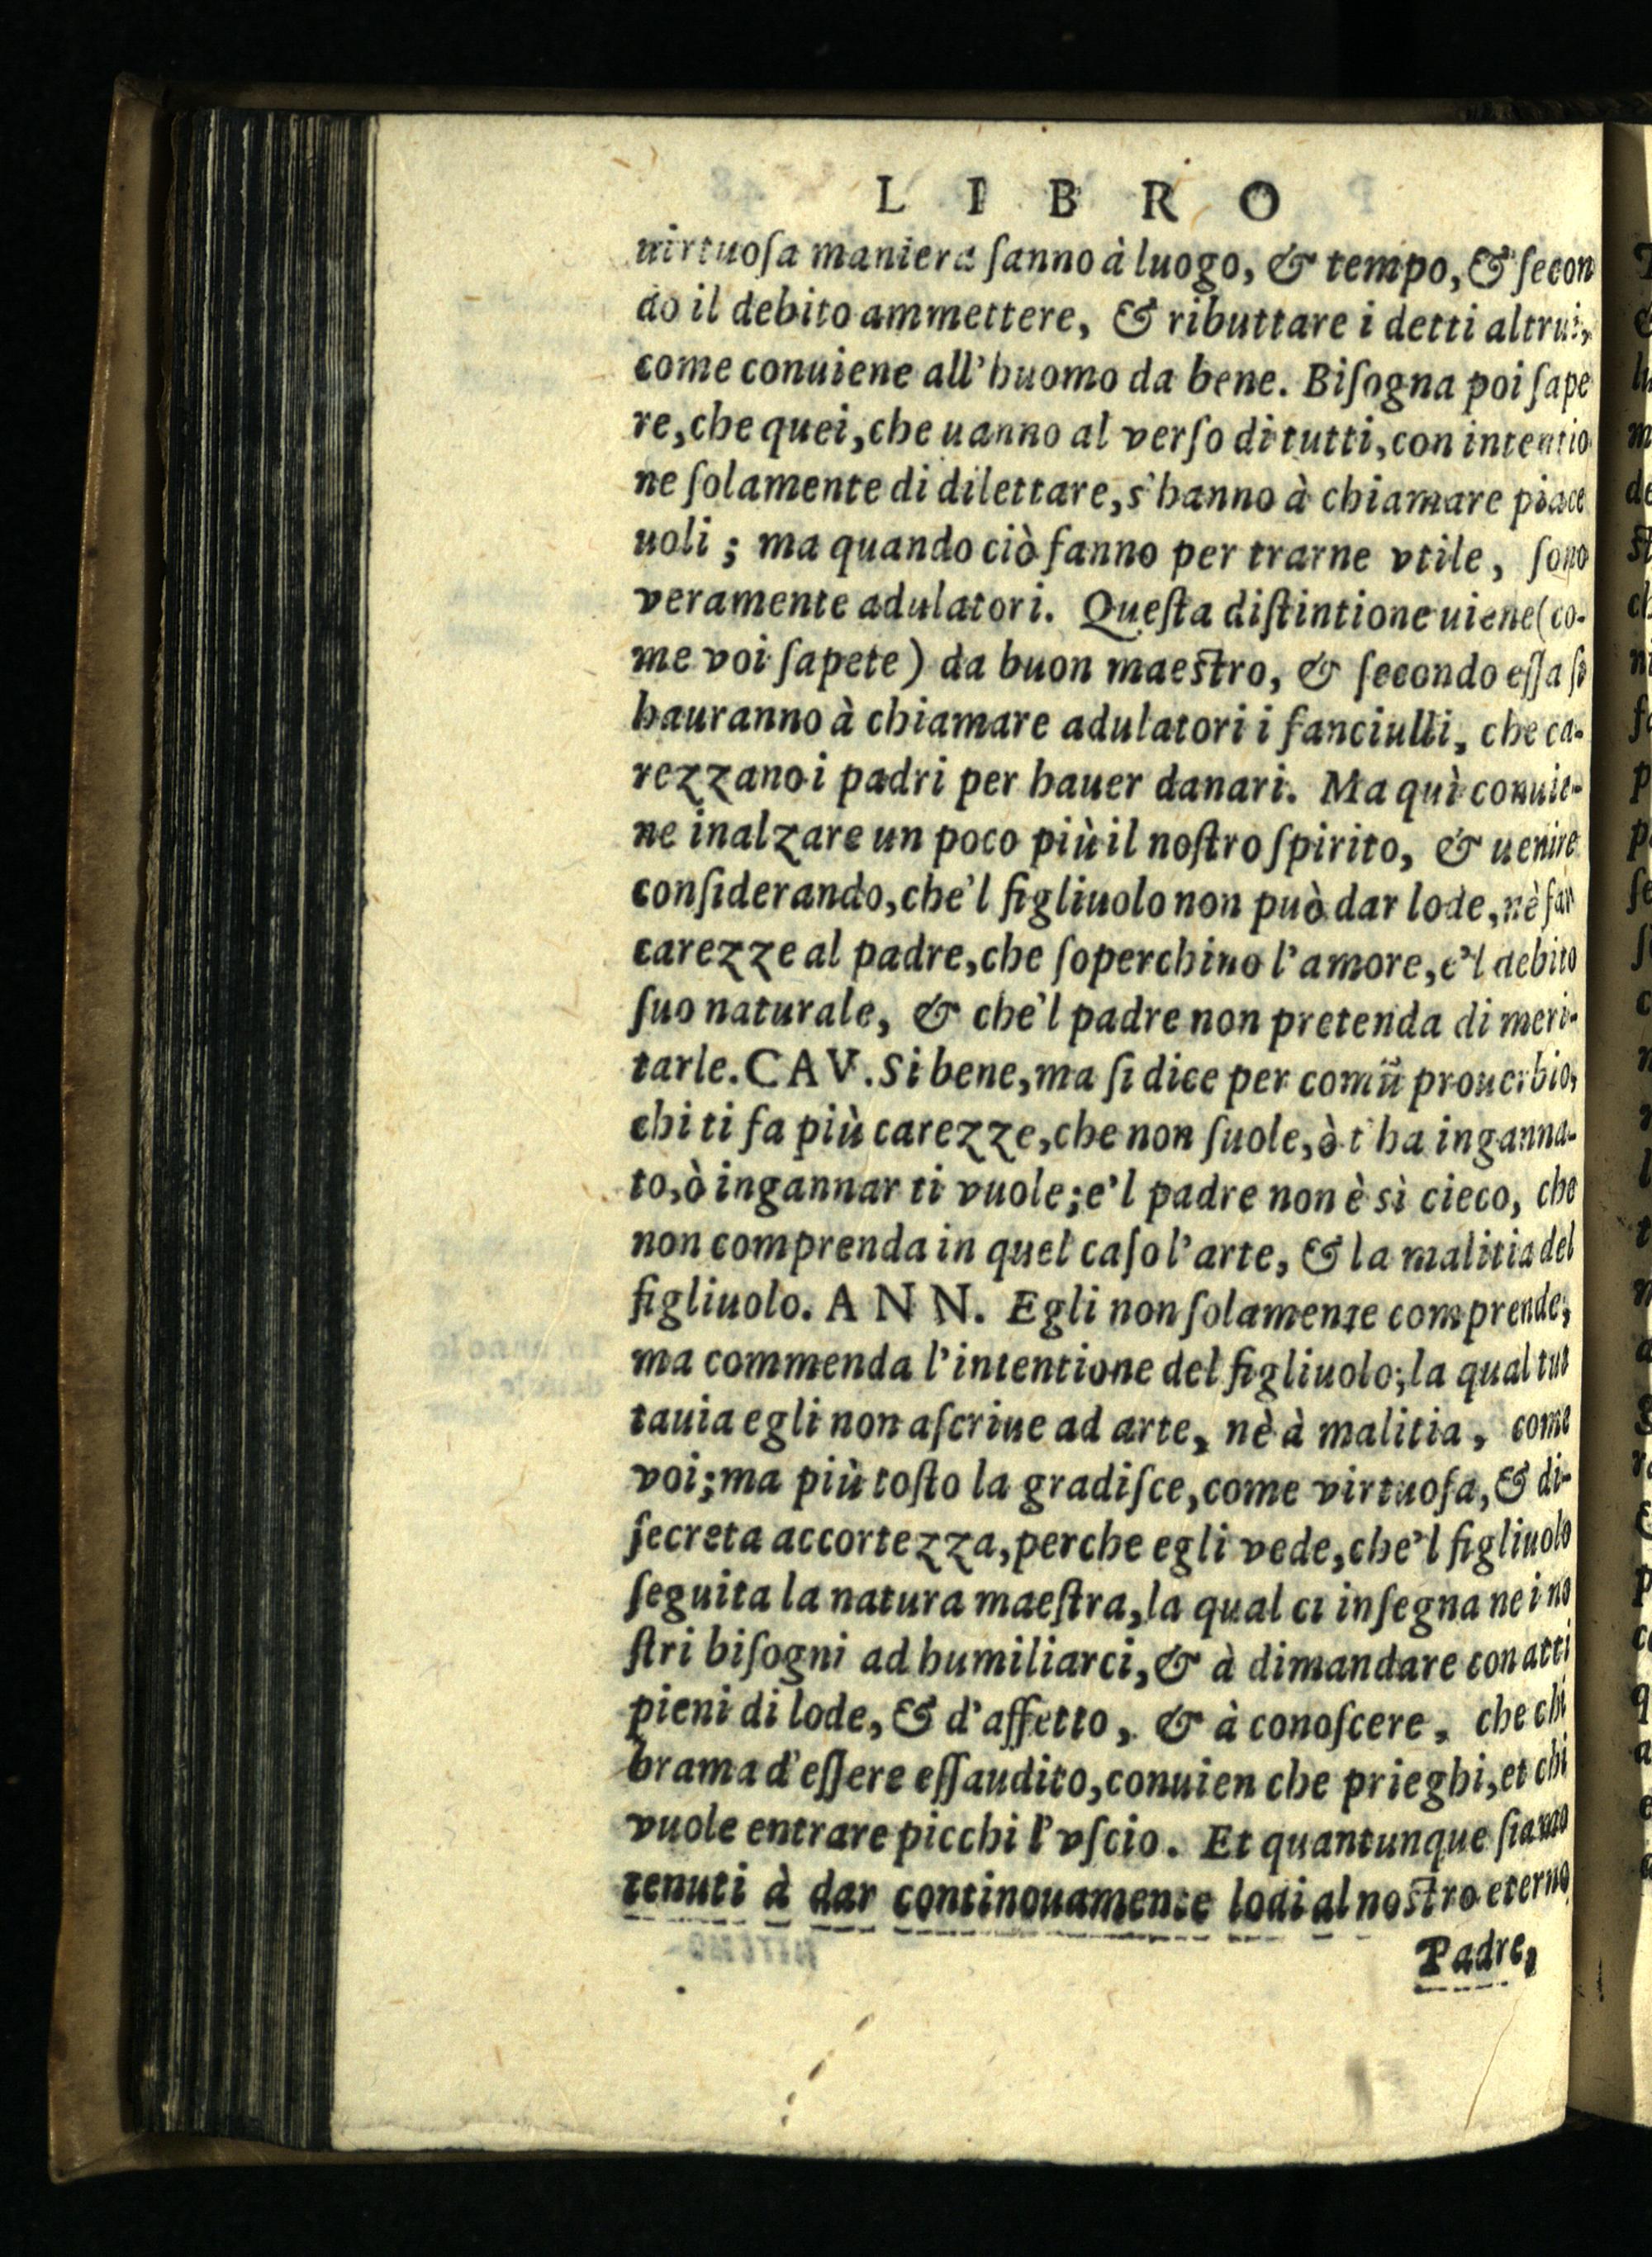 LIBRO
uirtuoſa maniera ſanno à luogo, & tempo, & ſecon
do il debito ammettere, & ributtare i detti altrui,
come conuiene all'huomo da bene. Biſogna poi ſape
re, che quei, che uanno al verſo di tutti, con intentio
ne ſolamente di dilettare, s'hanno à chiamare piace
uoli; ma quando ciò fanno per trarne vtile, ſono
veramente adulatori. Queſta diſtintione uiene (co-
me voi ſapete) da buon maeſtro, & ſecondo eſſa ſi
hauranno à chiamare adulatori i fanciulli, che ca-
rezzano i padri per hauer danari. Ma quì conuie-
ne inalzare un poco più il noſtro ſpirito, & uenire
conſiderando, che'l figliuolo non può dar lode, nè far
carezze al padre, che ſoperchino l'amore, e'l debito
ſuo naturale, & che'l padre non pretenda di meri-
tarle. CAV. Si bene, ma ſi dice per comũ prouerbio,
chi ti fa più carezze, che non ſuole, ò t'ha inganna-
to, ò ingannar ti vuole; e'l padre non è sì cieco, che
non comprenda in quel caſo l'arte, & la malitia del
figliuolo. ANN. Egli non ſolamente comprende,
ma commenda l'intentione del figliuolo; la qual tut
tauia egli non aſcriue ad arte, nè à malitia, come
voi; ma più toſto la gradiſce, come virtuoſa, & di-
ſecreta accortezza, perche egli vede, che'l figliuolo
ſeguita la natura maeſtra, la qual ci inſegna nei no
ſtri biſogni ad humiliarci, & à dimandare con atti
pieni di lode, & d'affetto, & à conoſcere, che chi
brama d'eſſere eſſaudito, conuien che prieghi, et chi
vuole entrare picchi l'vſcio. Et quantunque ſiamo
tenuti à dar continouamente lodi al noſtro eterno
Padre,